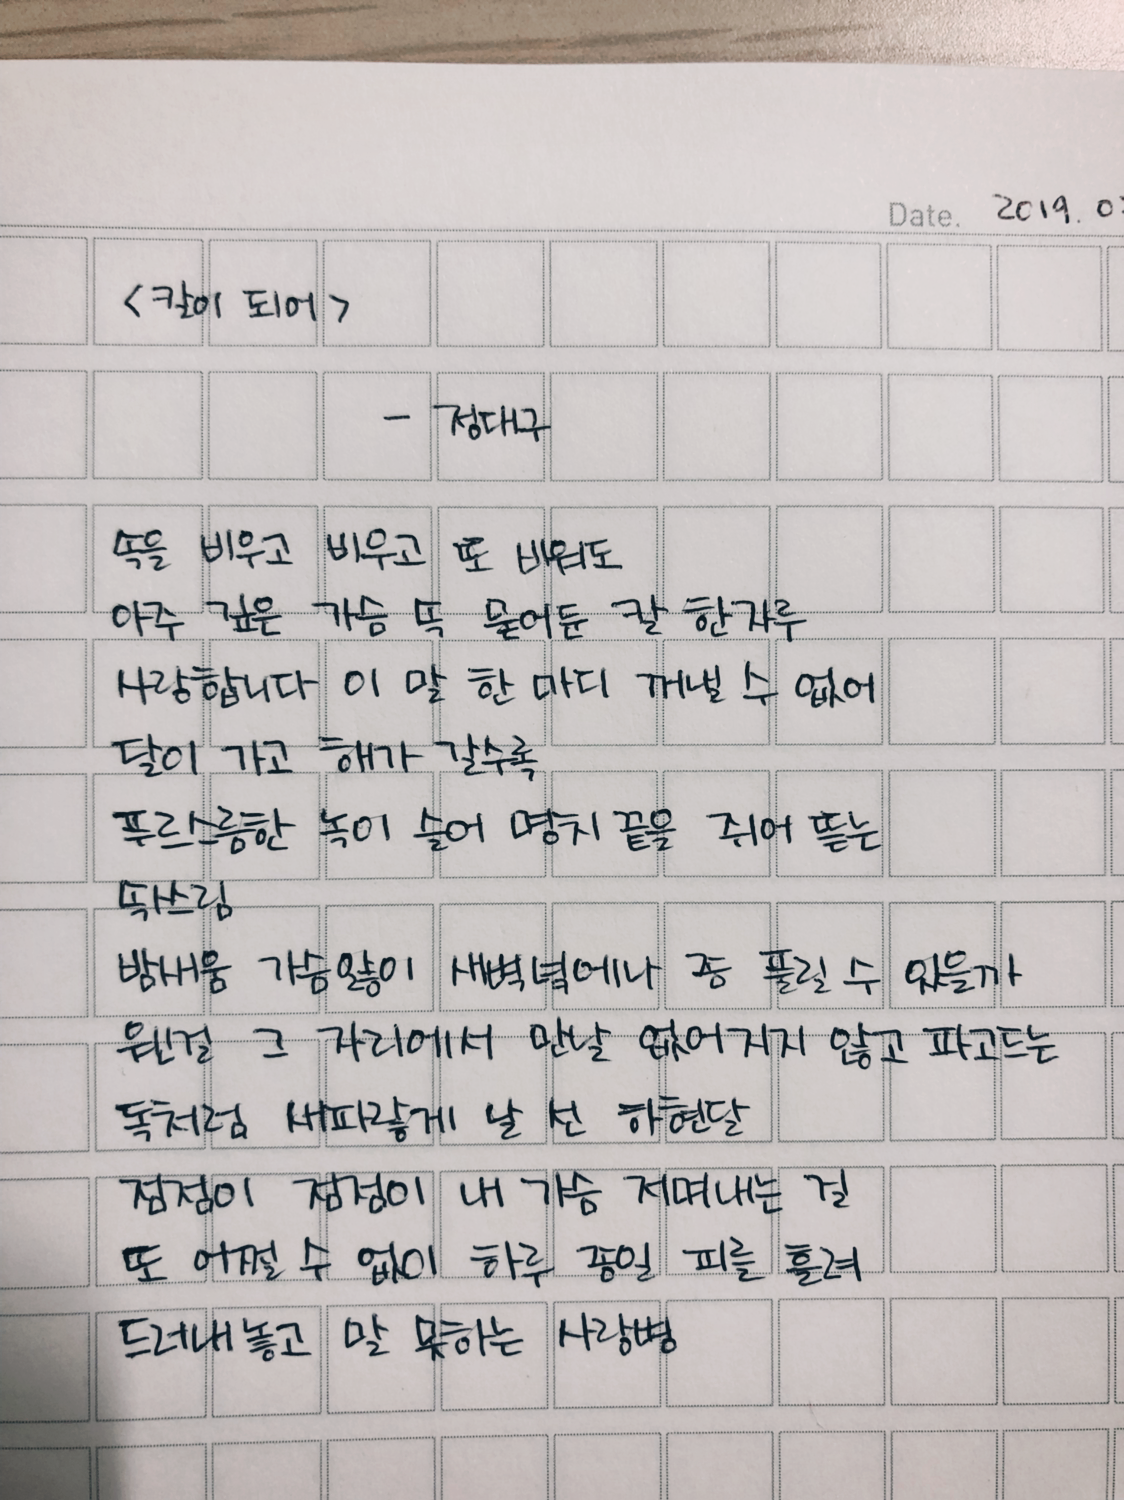 Date. 2019. 0
<칼이 되어>
- 정대구
속을 비우고 비우고 또 비워도
아주 깊은 가슴 뚝 묻어둔 칼 한자루
사랑합니다 이 말 한 마디 꺼낼 수 없어
달이 가고 해가 갈수록
푸르스름한 녹이 슬어 명치 끝을 쥐어 뜯는
속쓰림
밤새움 가슴앓이 새벽녘에나 좀 풀릴 수 있을까
웬걸 그 자리에서 만날 없어지지 않고 파고드는
독처럼 새파랗게 날 선 하현달
점점이 점점이 내 가슴 저며내는 걸
또 어쩔 수 없이 하루 종일 피를 흘려
드러내놓고 말 못하는 사랑병